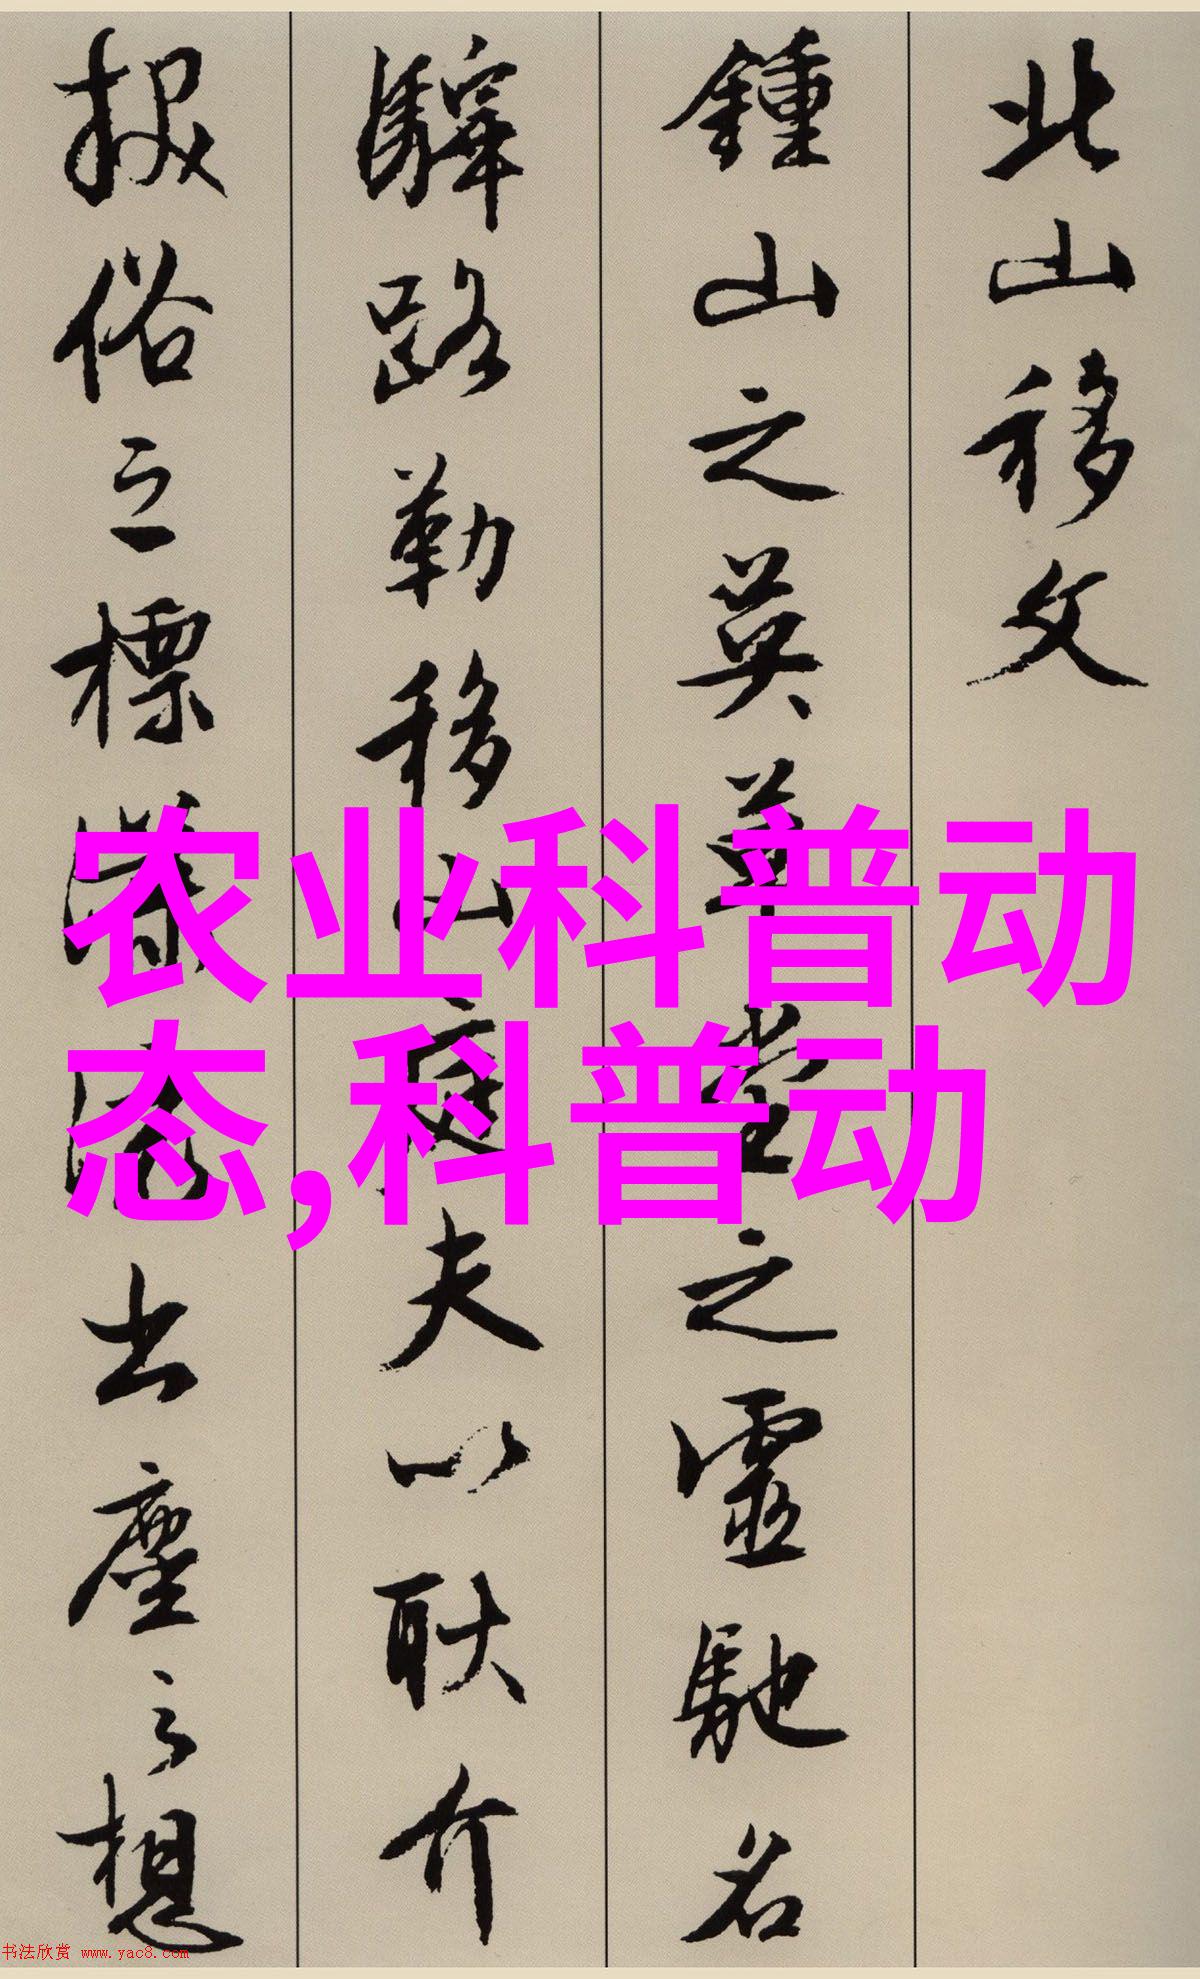 北山移文
鍾山之英草堂之靈馳名
驛路勒移山庭夫以耿介
拔俗之標瀟灑出塵之想
农业科普动
态,科普动
书法欣赏 www.yac8.com